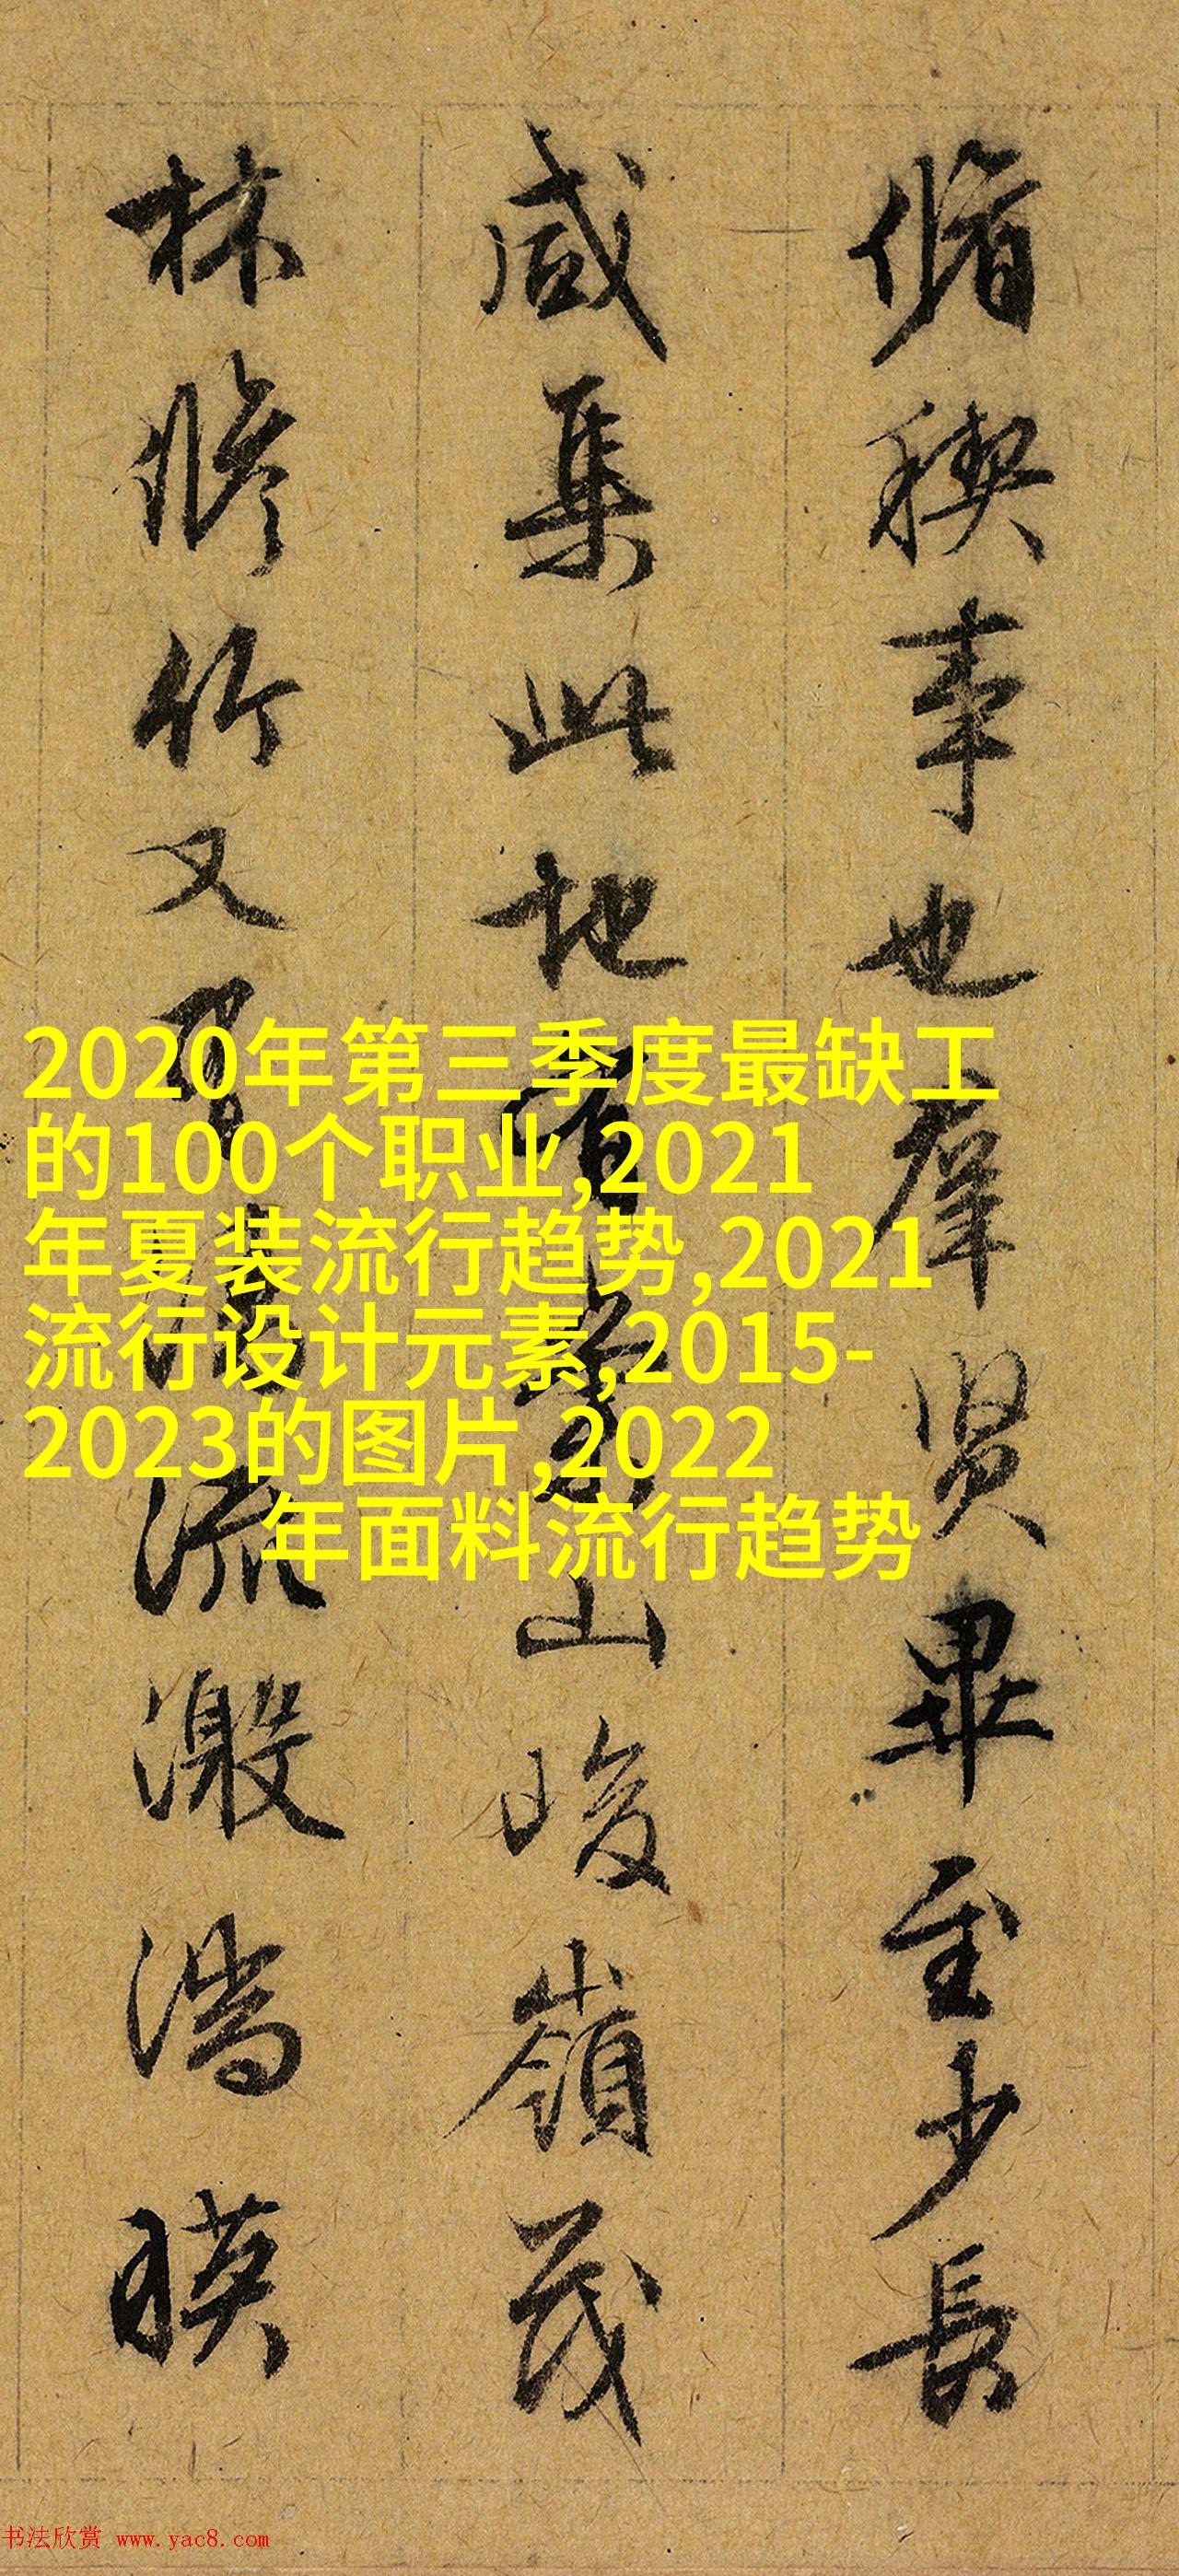 脩稧事也羣賢畢至少長
咸集此地有崇山峻嶺茂
林脩竹又有清流激湍暎
2020年第三季度最缺工
的100个职业,2021
年夏装流行趋势,2021
流行设计元素,2015-
2023的图片,2022
年面料流行趋势
书法欣赏 www.yac8.com